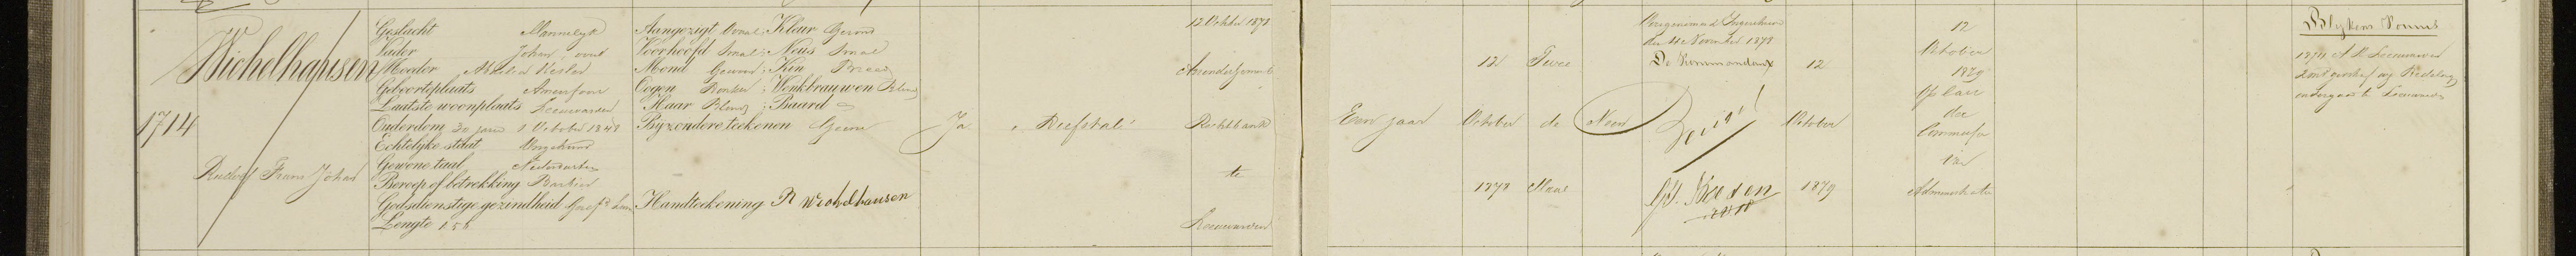 Wichelhausen
1714
Rudolf Frans Johan
Geslacht Mannelyk
Vader Johan, oud
Moeder Kesler
Geboorteplaats Amersfoort
Laatste woonplaats Leeuwarden
Ouderdom 30 jaren 8 October 1848
Echtelyke staat Ongehuwd
Gewone taal Nederduitsch
Beroep of betrekking Barbier
Godsdienstige gezindheid
Lengte 1.56
Aangezigt Ovaal; Kleur Gezond
Voorhoofd Smal; Neus Smal
Mond Gewoon; Kin
Oogen; Wenkbrauwen Blond
Haar Blond; Baard
Byzondere teekenen Geene
Handteekening R Wichelhausen
Ja
Diefstal
12 October 1878
Arrondissements
Rechtbank
te
Leeuwarden
Een jaar
12
October
1878
Twee
de
Maal
Neen
den 11 November 1878
De Kommandant
12
October
1879
12
October
1879
op last
der
Commissie
van
Administratie
Blykens Vonnis
Leeuwarden